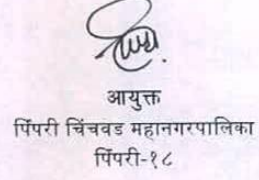 आयुक्त
पिंपरी चिंचवड महानगरपालिका
पिंपरी-१८